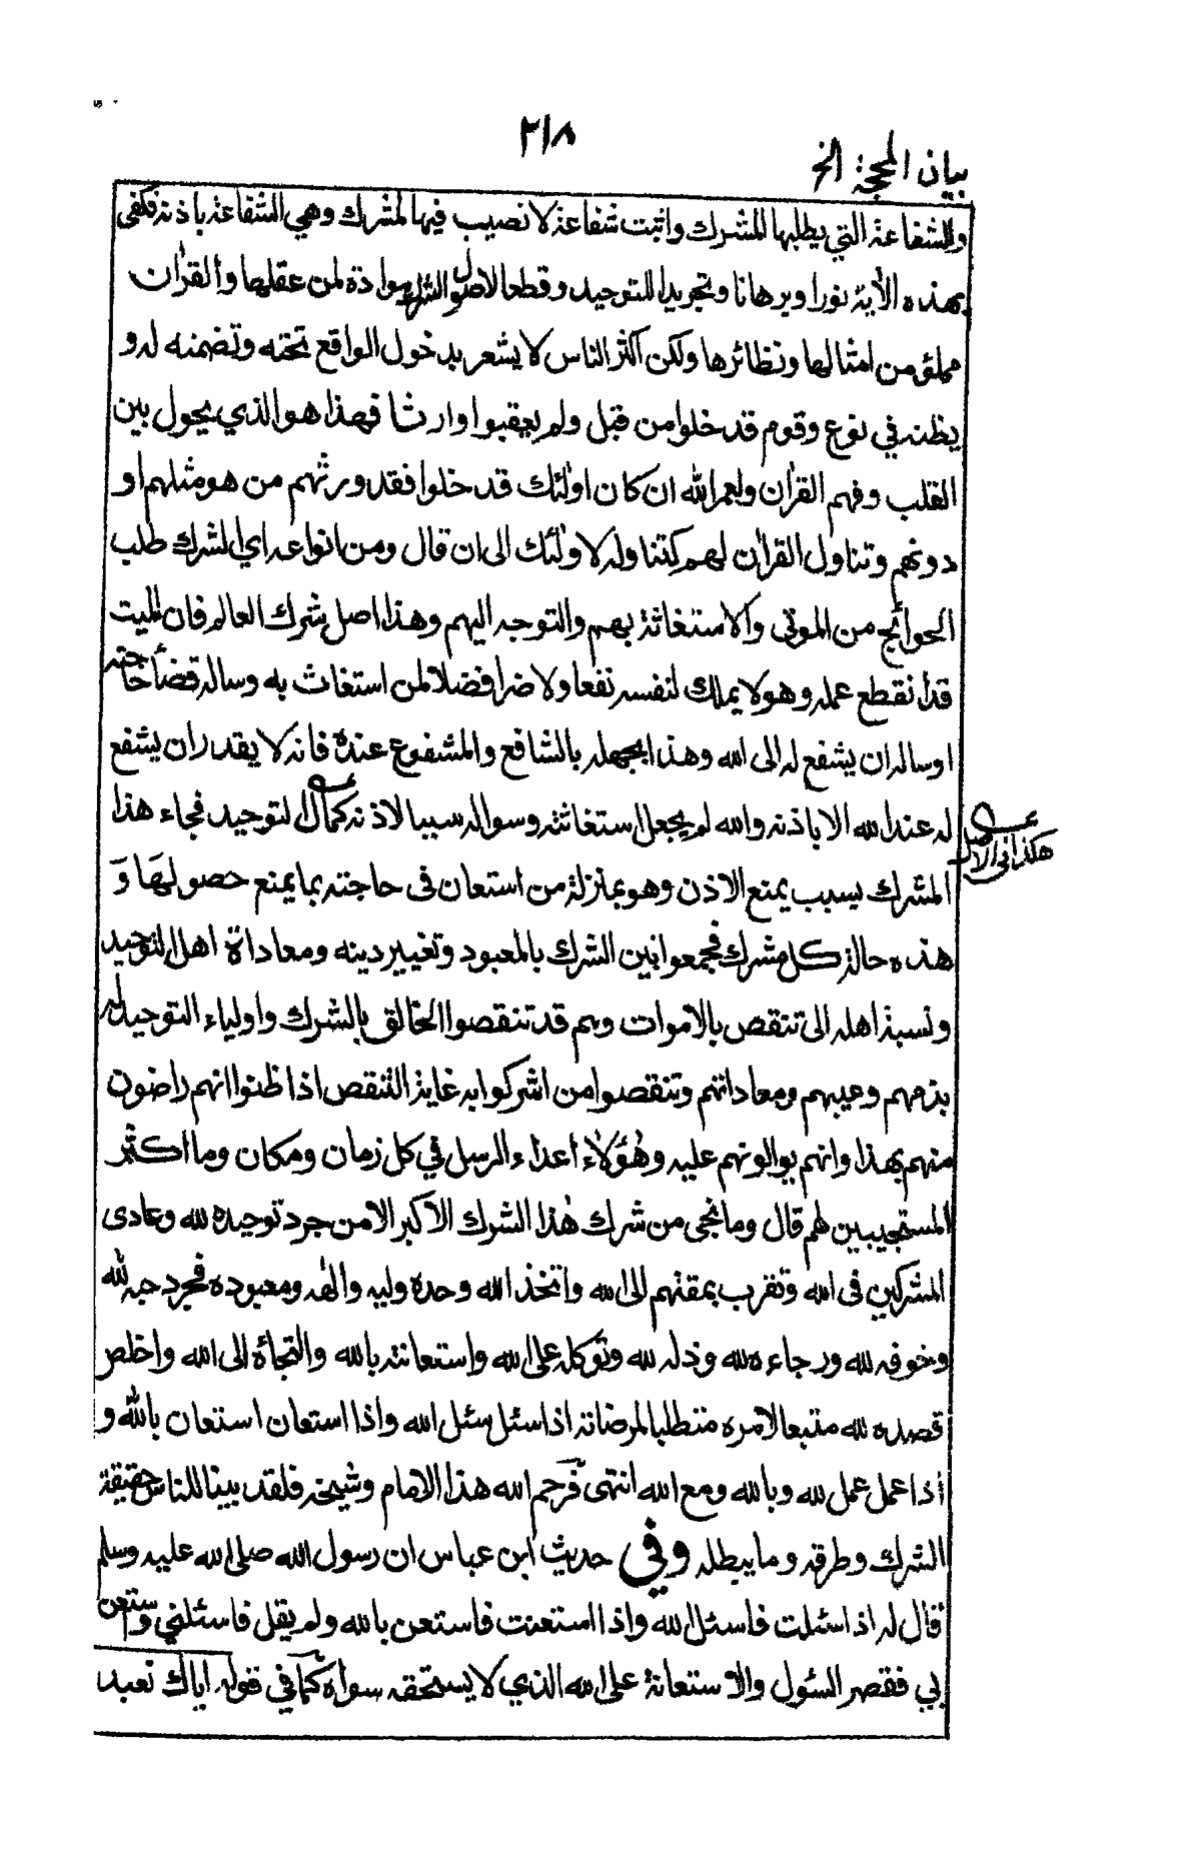 ٢١٨
بيان المحجة الخ
والشفاعة التي يطلبها المشرك واثبت شفاعة لا نصيب فيها لمشرك وهي الشفاعة باذنه فكفى
بهذه الأية نورا وبرهانا وتجريدا للتوحيد وقطعا لاصول الشرك وموادة لمن عقلها والقرأن
مملؤ من امثالها ونظائرها ولكن اكثر الناس لا يشعر بدخول الواقع تحته وتضمنه له و
يظنه في نوع وقوم قد خلوا من قبل ولم يعقبوا وارثا فهذا هو الذي يحول بين
القلب وفهم القرأن ولعمر الله ان كان اولئك قد خلوا فقد ورثهم من هو مثلهم او
دونهم وتناول القرأن لهم كتناوله لاولئك الى ان قال ومن انواعه اي الشرك طلب
الحوائج من الموتى والاستغاثة بهم والتوجه اليهم وهذا اصل شرك العالم فان الميت
قد انقطع عمله وهو لا يملك لنفسه نفعا ولا ضرا فضلا لمن استغاث به وساله قضأ حاجته
او ساله ان يشفع له الى الله وهذا لجهله بالشافع والمشفوع عنده فانه لا يقدر ان يشفع
له عند الله الا باذنه والله لم يجعل استغاثته وسواله سببا لاذنه كمال التوحيد فجاء هذا
هكذا في الاصل
المشرك بسبب يمنع الاذن وهو بمنزلة من استعان في حاجته بما يمنع حصولها و
هذه حالة كل مشرك فجمعوا بين الشرك بالمعبود وتغيير دينه ومعاداة اهل التوحيد
ونسبة اهله الى تنقص بالاموات وهم قد تنقصوا الخالق بالشرك واولياء التوحيد له
بذمهم وعيبهم ومعاداتهم وتنقصوا من اشركوا به غاية التنقص اذا ظنوا انهم راضون
منهم بهذا وانهم يوالونهم عليه وهؤلاء اعداء الرسل في كل زمان ومكان وما اكثر
المستجيبين لهم قال وما نجى من شرك هذا الشرك الاكبر الا من جرد توحيده لله وعادى
المشركين في الله وتقرب بمقتهم الى الله واتخذ الله وحده وليه والهه ومعبوده فجرد حبه لله
وخوفه لله ورجاءه لله وذله لله وتوكله على الله واستعانته بالله والتجاءه الى الله واخلص
قصده لله متبعا لامره متطلبا لمرضاته اذا سئل سئل الله واذا استعان استعان بالله و
اذا عمل عمل لله وبالله ومع الله انتهى فرحم الله هذا الامام وشيخه فلقد بينا للناس حقيقة
الشرك وطرقه وما يبطله وفي حديث ابن عباس ان رسول الله صلى الله عليه وسلم
قال له اذا سئلت فاسئل الله واذا استعنت فاستعن بالله ولم يقل فاسئلني واستعن
بي فقصر السئول والاستعانة على الله الذي لا يستحقه سواه كما في قوله اياك نعبد